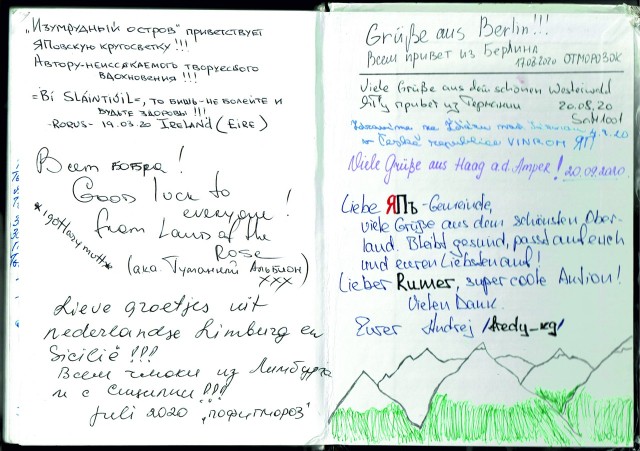 „Изумрудный остров" приветствует
ЯПовскую кругосветку !!!
Автору-неиссякаемого творческого
вдохновения !!!
=Bí SLÁINTIÚIL=, то бишь-не болейте и
будьте здоровы !!!
-RORUS- 19.03.20 IRELAND (EIRE)
Всем бобра!
Good luck to
everyone!
from Land of the
Rose
(aka. Туманный Альбион)
xxx
Lieve groetjes uit
nederlandse Limburg en
Sicilië !!!
Всем чмоки из Лимбурга
и с Сицилии !!!
juli 2020 „пофигмороз"
Grüße aus Berlin!!!
Всем привет из Берлина
17.03.2020 ОТМОРОЗОК
Viele Grüße aus dem schönen Westerwald
ЯПу привет из Германии 20.08.20
VINROM ЯП
Viele Grüße aus Haag a.d. Amper! 20.09.2020
Liebe ЯПъ-Gemeinde,
viele Grüße aus dem schönsten Ober-
land. Bleibt gesund, passt auf euch
und euren Liebsten auf!
Lieber Rumer, super coole Aktion!
Vielen Dank.
Eurer Andrej /Aedy-kg/